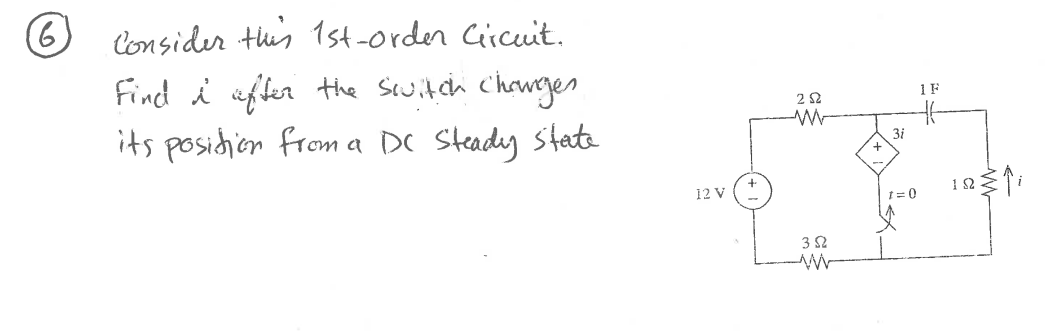 6 Consider this 1st-order Circuit.
Find i after the switch changes
its position from a DC steady state
2 Ω
1 F
3i
+
−
12 V
+
−
t = 0
1 Ω
i
3 Ω